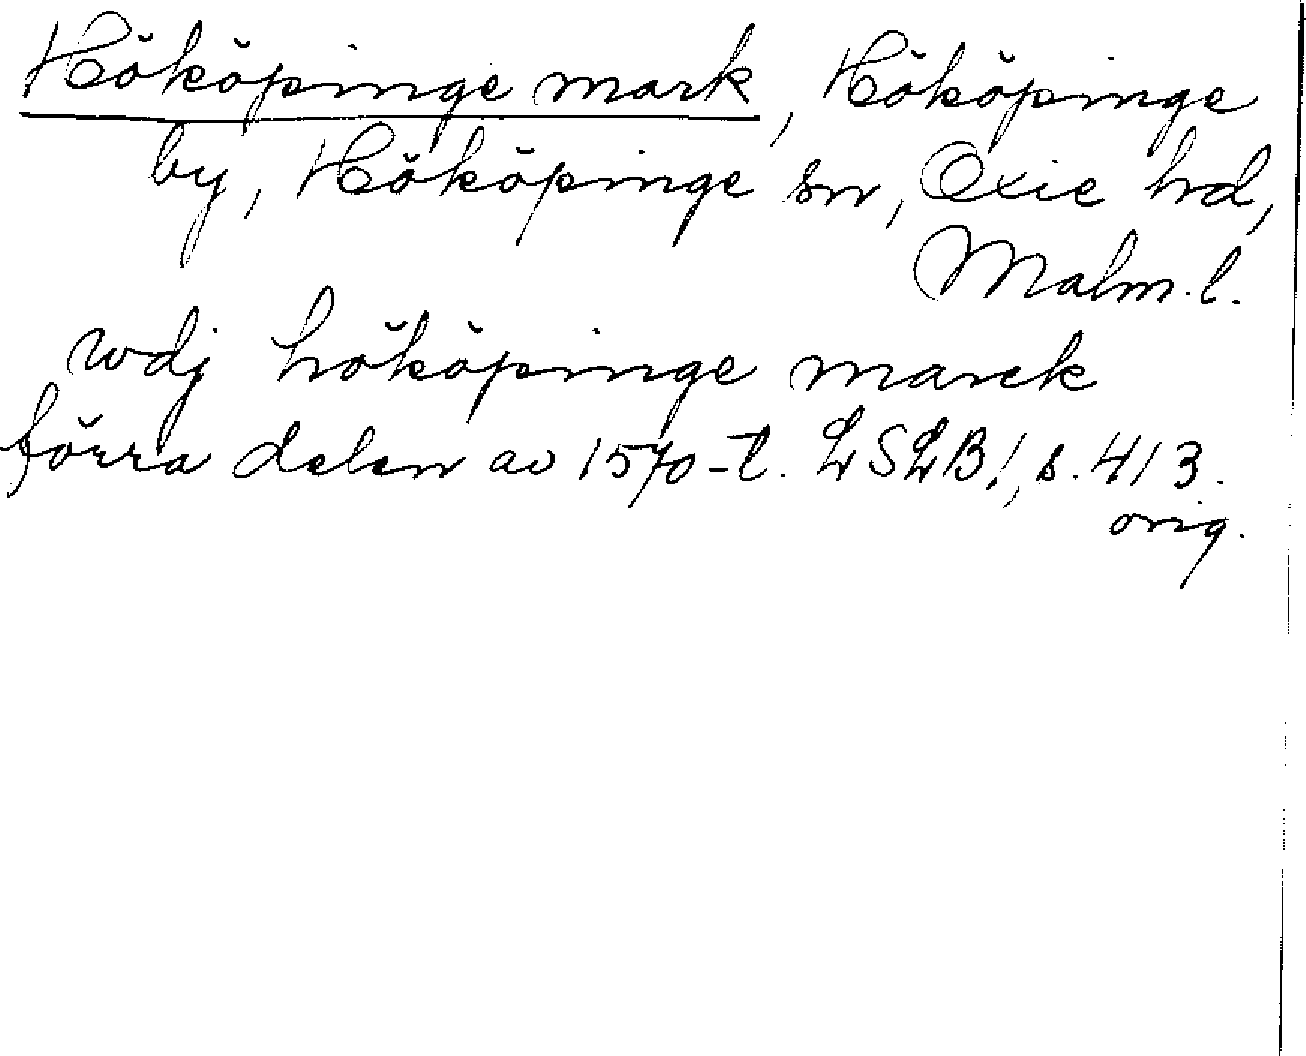 Hököpinge mark, Hököpinge
by, Hököpinge sn, Oxie hd,
Malm. l.
wdj hököpinge marck
förra delen av 1570-t. LSLB I, s. 413.
orig.